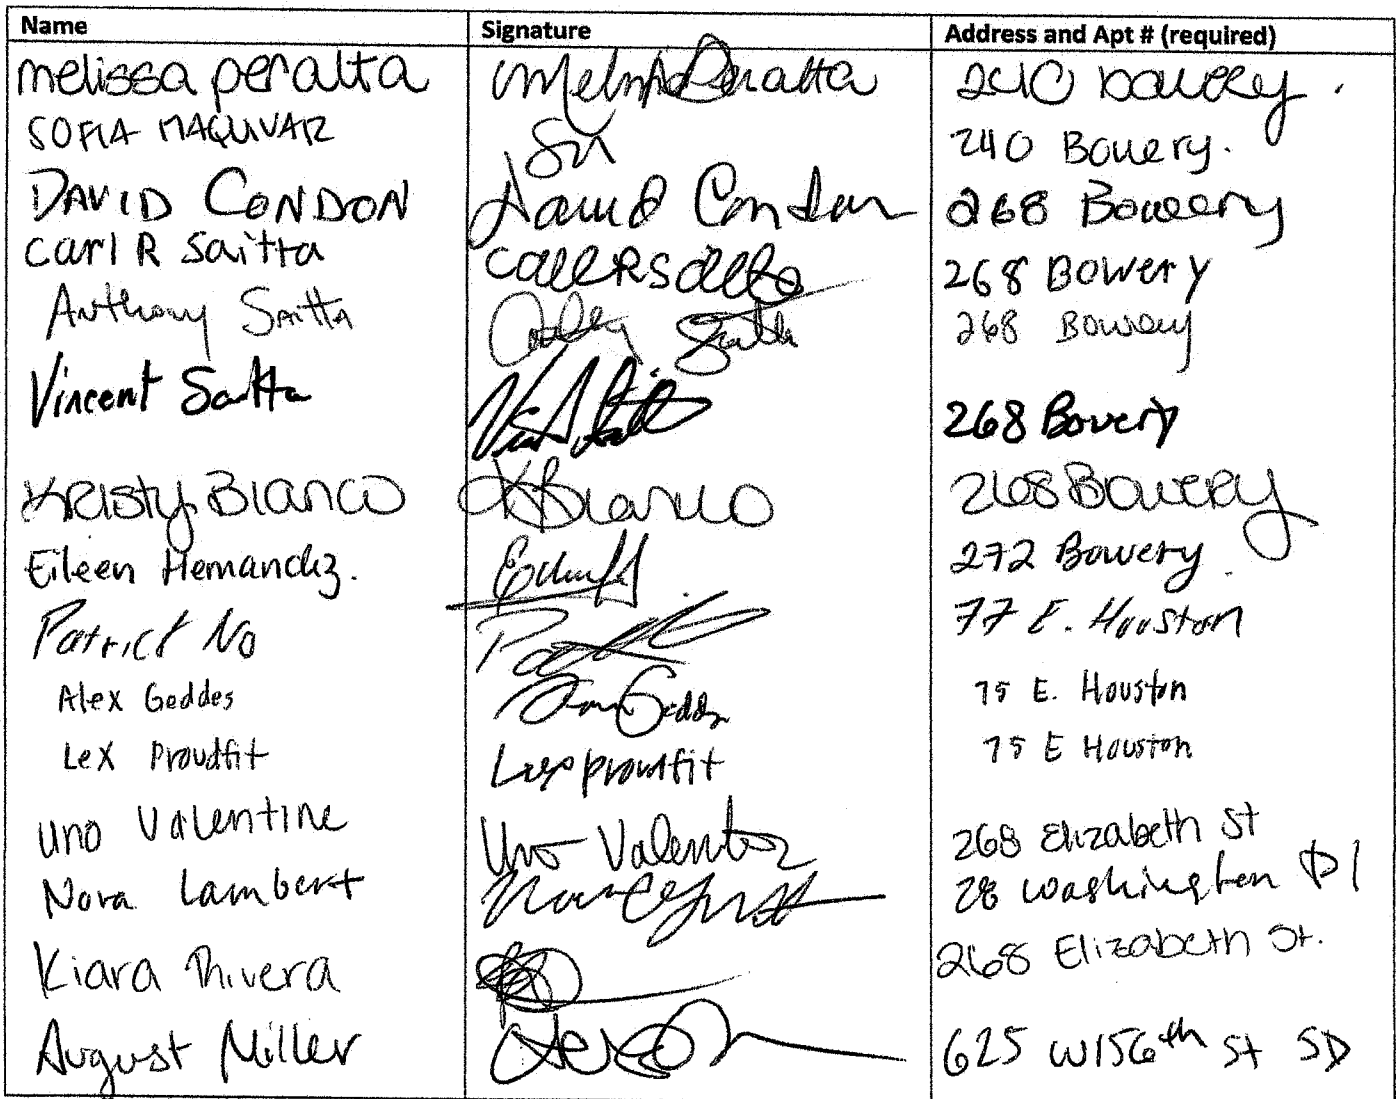 Name Signature Address and Apt # (required)
melissa peralta Melissa Peralta 240 bowery.
SOFIA MAQUIVAR 240 Bowery.
DAVID CONDON David Condon 268 Bowery
Carl R Saitta Carl R Saitta 268 Bowery
Anthony Saitta 268 Bowery
Vincent Saitta 268 Bowery
Kristy Bianco K Bianco 268 Bowery
Eileen Hernandez. 272 Bowery.
Patrick No 77 E. Houston
Alex Geddes 75 E. Houston
Lex Proudfit Lex proudfit 75 E Houston
Uno Valentine Uno Valentine 268 Elizabeth St
Nora Lambert 28 Washington Pl
Kiara Rivera 268 Elizabeth St.
August Miller 625 W156th St 5D